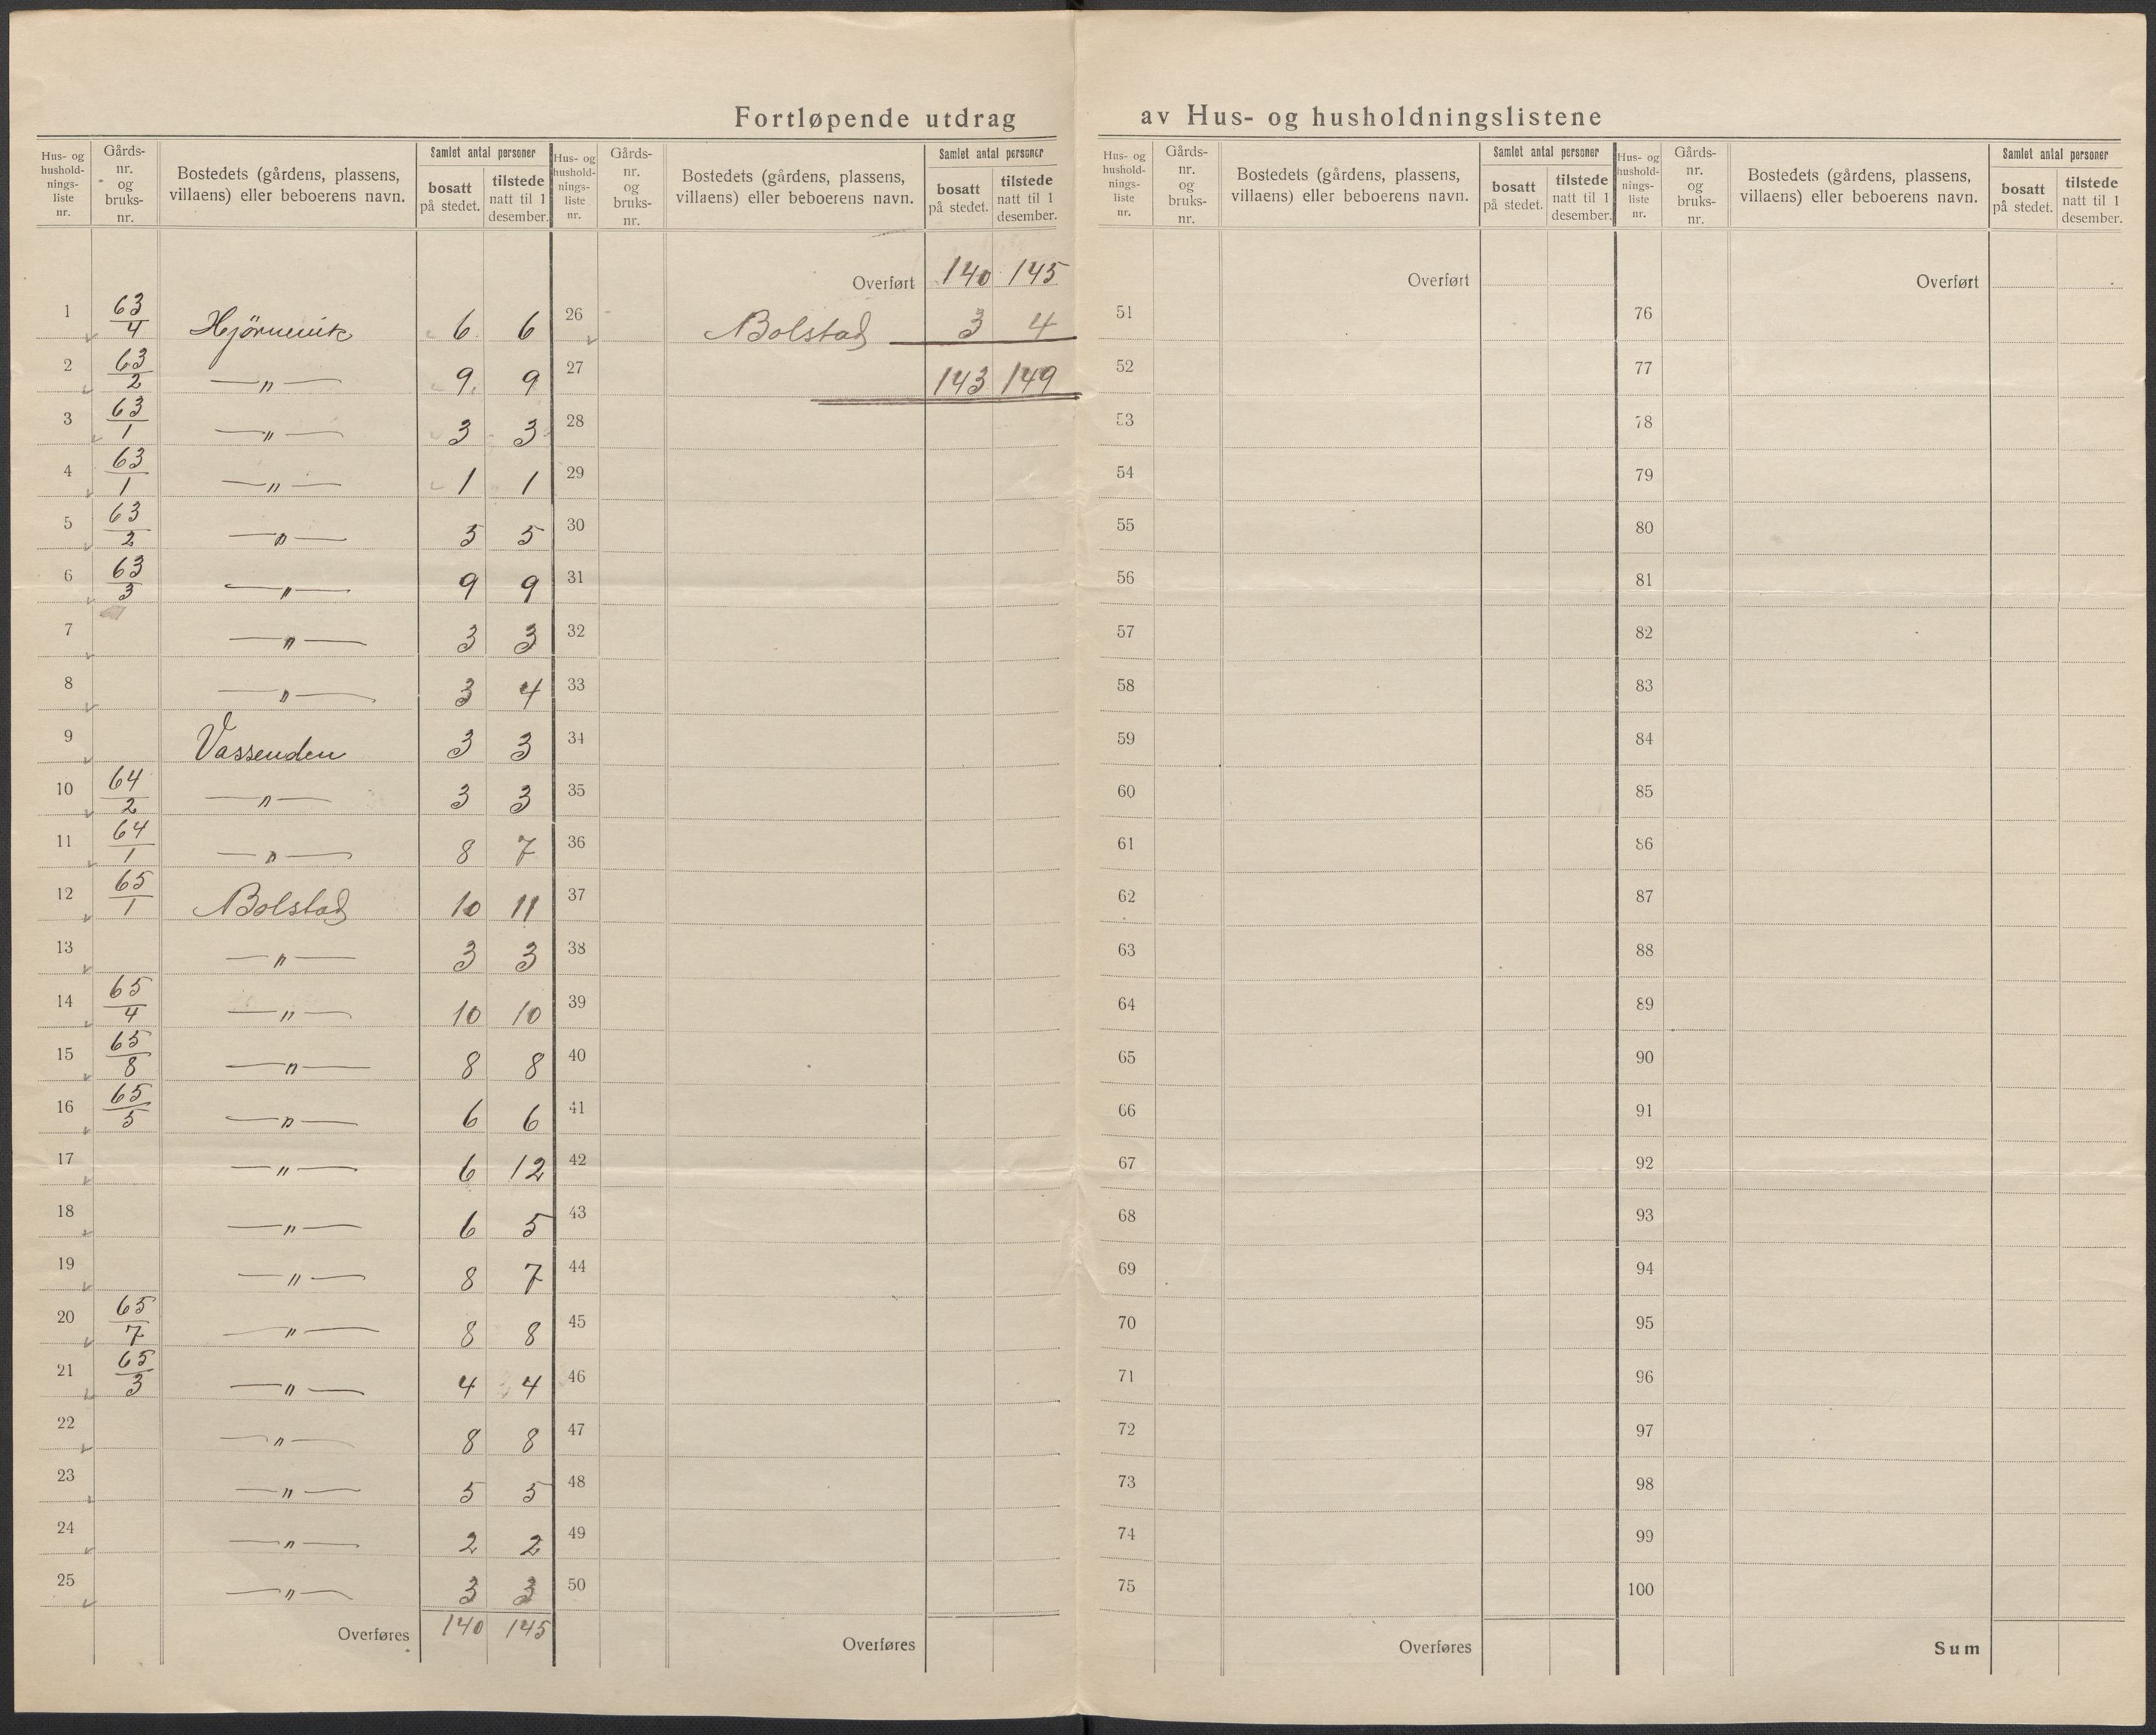 Fortløpende utdrag av Hus- og husholdningslistene
Hus- og hushold- nings- liste nr. Gårds- nr. og bruks- nr. Bostedets (gårdens, plassens, villaens) eller beboerens navn. Samlet antal personer bosatt på stedet. tilstede natt til 1 desember.
1 63/4 Hjörnevik 6 6
2 63/2 —„— 9 9
3 63/1 —„— 3 3
4 63/1 —„— 1 1
5 63/2 —„— 5 5
6 63/3 —„— 9 9
7 —„— 3 3
8 —„— 3 4
9 Vassenden 3 3
10 64/2 —„— 3 3
11 64/1 —„— 8 7
12 65/1 Bolstad 10 11
13 —„— 3 3
14 65/4 —„— 10 10
15 65/8 —„— 8 8
16 65/5 —„— 6 6
17 —„— 6 12
18 —„— 6 5
19 —„— 8 7
20 65/7 —„— 8 8
21 65/3 —„— 4 4
22 —„— 8 8
23 —„— 5 5
24 —„— 2 2
25 —„— 3 3
Overføres 140 145
Hus- og hushold- nings- liste nr. Gårds- nr. og bruks- nr. Bostedets (gårdens, plassens, villaens) eller beboerens navn. Samlet antal personer bosatt på stedet. tilstede natt til 1 desember.
Overført 140 145
26 Bolstad 3 4
27 143 149
28
29
30
31
32
33
34
35
36
37
38
39
40
41
42
43
44
45
46
47
48
49
50
Overføres
Hus- og hushold- nings- liste nr. Gårds- nr. og bruks- nr. Bostedets (gårdens, plassens, villaens) eller beboerens navn. Samlet antal personer bosatt på stedet. tilstede natt til 1 desember.
Overført
51
52
53
54
55
56
57
58
59
60
61
62
63
64
65
66
67
68
69
70
71
72
73
74
75
Overføres
Hus- og hushold- nings- liste nr. Gårds- nr. og bruks- nr. Bostedets (gårdens, plassens, villaens) eller beboerens navn. Samlet antal personer bosatt på stedet. tilstede natt til 1 desember.
Overført
76
77
78
79
80
81
82
83
84
85
86
87
88
89
90
91
92
93
94
95
96
97
98
99
100
Sum